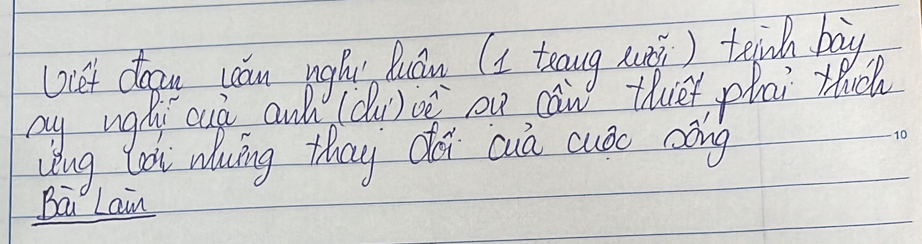 Viết đoạn văn nghị luận (1 trang rưỡi) trình bày
suy nghĩ của anh (chị) về sự cần thiết phải thích
ứng với những thay đổi của cuộc sống
10
Bài Làm